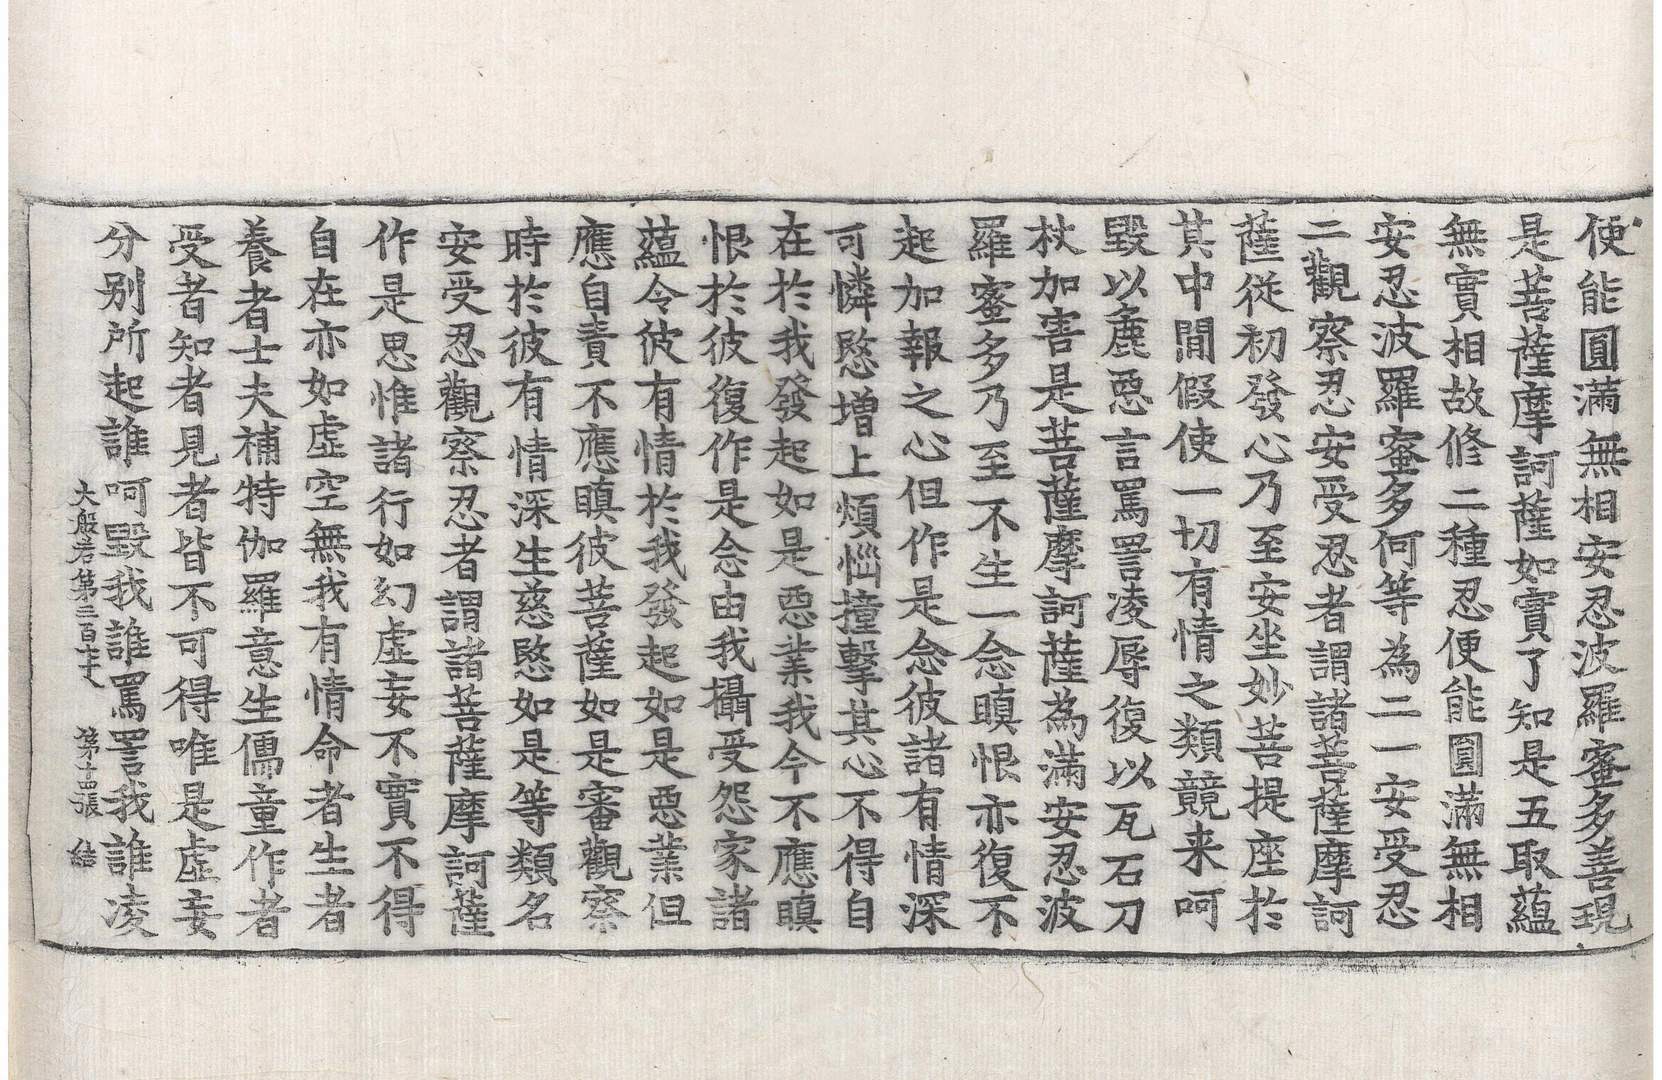 使能圓滿無相安忍波羅蜜多善現
是菩薩摩訶薩如實了知是五取蘊
無實相故修二種忍便能圓滿無相
安忍波羅蜜多何等為二一安受忍
二觀察忍安受忍者謂諸菩薩摩訶
薩從初發心乃至安坐妙菩提座於
其中間假使一切有情之類競来呵
毀以麁惡言罵詈凌辱復以瓦石刀
杖加害是菩薩摩訶薩為滿安忍波
羅蜜多乃至不生一念瞋恨亦復不
起加報之心但作是念彼諸有情深
可憐愍增上煩惱撞擊其心不得自
在於我發起如是惡業我今不應瞋
恨於彼復作是念由我攝受怨家諸
蘊令彼有情於我發起如是惡業但
應自責不應瞋彼菩薩如是審觀察
時於彼有情深生慈愍如是等類名
安受忍觀察忍者謂諸菩薩摩訶薩
作是思惟諸行如幻虛妄不實不得
自在亦如虛空無我有情命者生者
養者士夫補特伽羅意生儒童作者
受者知者見者皆不可得唯是虛妄
分別所起誰呵毀我誰罵詈我誰凌
大般若第三百七十八 第十四張 結